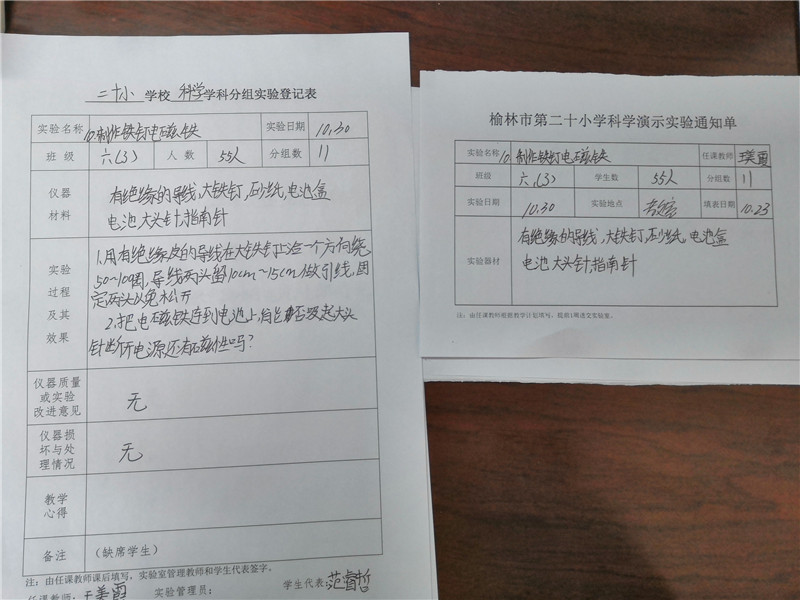 二十小 学校 科学 学科分组实验登记表
实验名称 10.制作铁钉电磁铁 实验日期 10.30
班级 六(3) 人数 55人 分组数 11
仪器材料 有绝缘的导线,大铁钉,砂纸,电池盒
电池,大头针,指南针
实验过程及其效果 1.用有绝缘皮的导线在大铁钉上沿一个方向绕
50~10圈,导线两头留10cm~15cm做引线,固
定两头以免松开
2.把电磁铁连到电池上,能否吸起大头
针断开电源还有磁性吗?
仪器质量或实验改进意见 无
仪器损坏与处理情况 无
教学心得
备注 (缺席学生)
注:由任课教师课后填写,实验室管理教师和学生代表签字。
任课教师:王美霞 实验管理员: 学生代表:范睿哲
榆林市第二十小学科学演示实验通知单
实验名称 10.制作铁钉电磁铁 任课教师 王美霞
班级 六(3) 学生数 55人 分组数 11
实验日期 10.30 实验地点 填表日期 10.23
实验器材 有绝缘的导线,大铁钉,砂纸,电池盒
电池,大头针,指南针
注:由任课教师根据教学计划填写,提前1周送交实验室。